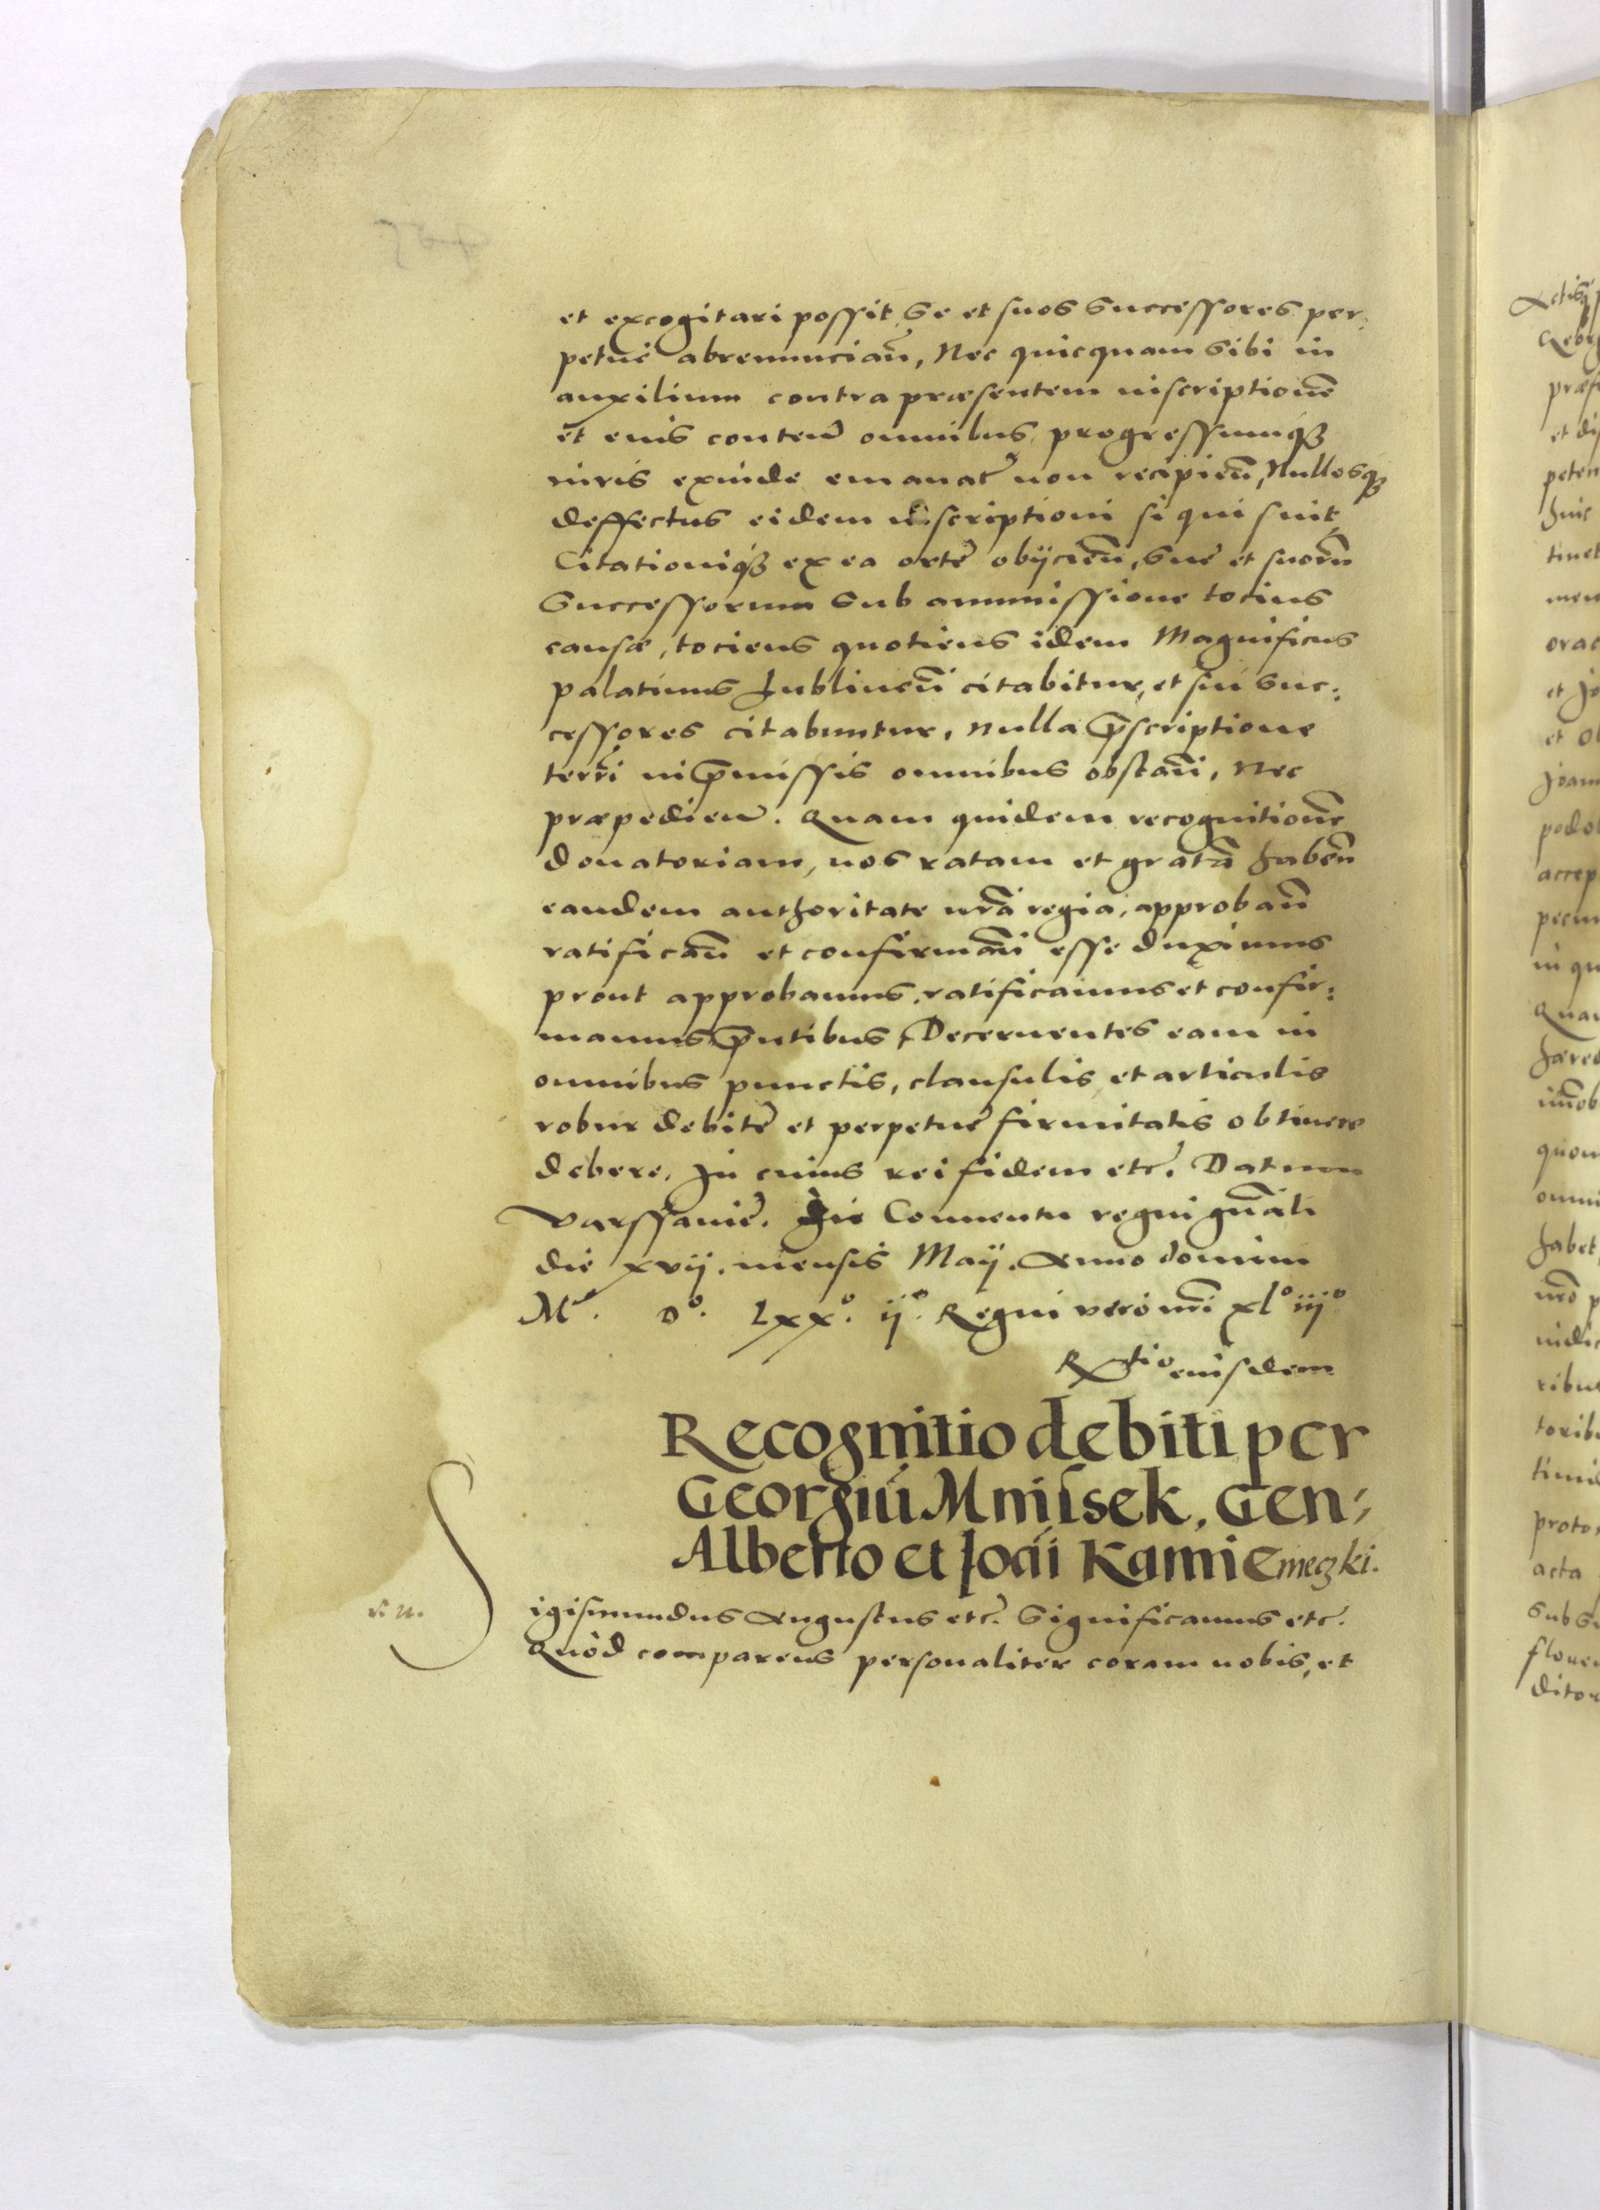 et excogitari possit, Se et suos Successores per:
petue abrenuncian̄, Nec quicquam sibi in
auxilium contra præsentem inscriptionē
et eius conten̄ omnibus, progressumq3
iuris exinde emanat̄ non recipien̄, Nullosq3
deffectus eidem inscriptioni si qui sint
Citationiq3 ex ea ortę obijcien̄, Suę et suorū
Successorum sub ammissione tocius
causæ, tociens quotiens idem Magnificus
palatinus Lublinen̄ citabitur, et sui Suc:
cessores citabuntur, nulla p̄scriptione
terr̄i in p̄missis omnibus obstan̄, Nec
præpedien̄. Quam quidem recognitionē
donatoriam, nos ratam et gratā haben̄
eandem authoritate nr̄a regia, approban̄
ratifican̄ et confirman̄ esse duximus
prout approbamus, ratificamus et confir:
mamus p̄ntibus, Decernentes eam in
omnibus punctis, clausulis et articulis
robur debitę et perpetuę firmitatis obtinere
debere, In cuius rei fidem etc̄. Datum
Varssavię. In Conuentu regni gn̄ali
die xvij. mensis Maij. Anno domini
Mo. Do. Lxxo. ijo. Regni vero nr̄i xlo iijo
Rxtio eiusdem
Recognitio debiti per
Georgiū Mnissek, Gen:
Alberto et Joāi Kamiemeczki.
Sigismundus Augustus etc̄. Significamus etc̄.
Quòd comparens personaliter coram nobis, et